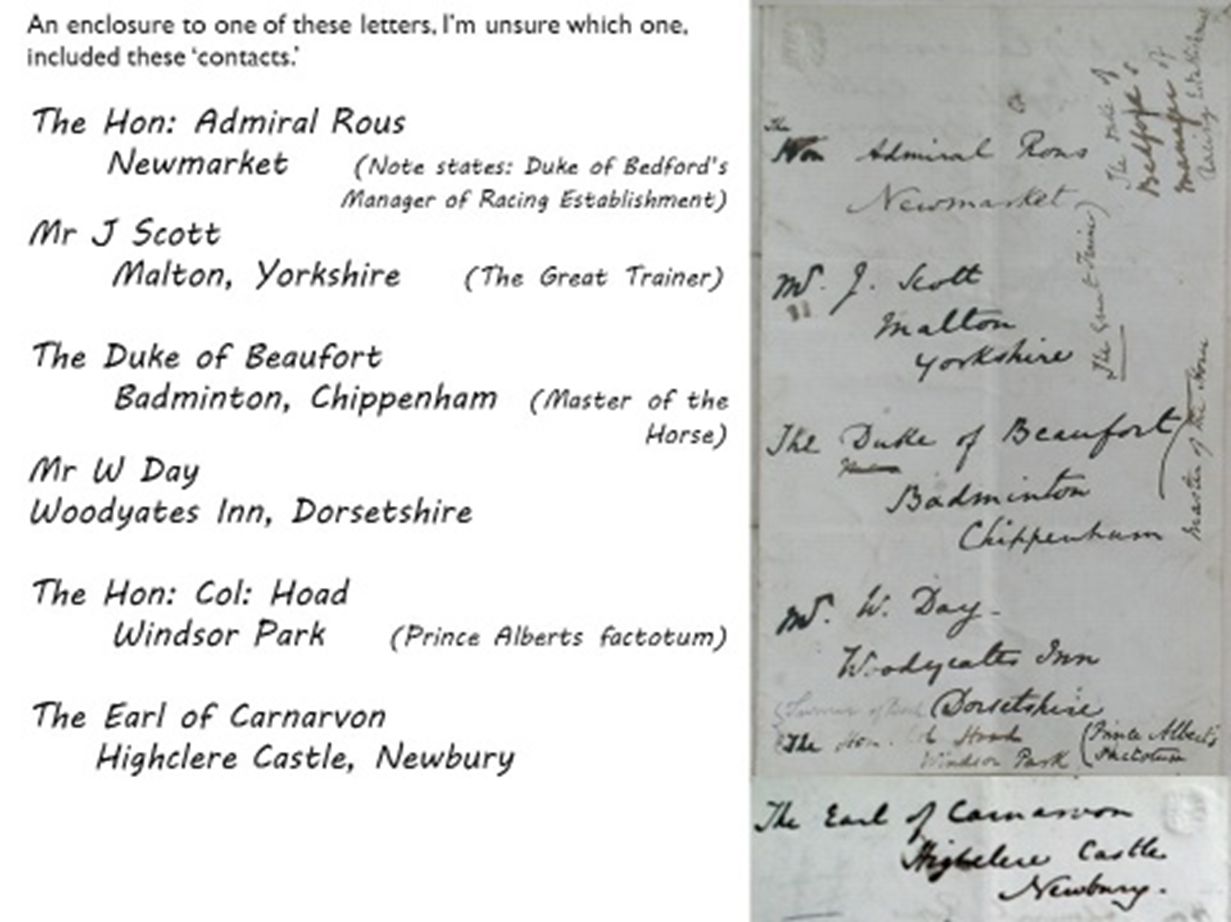 An enclosure to one of these letters, I'm unsure which one,
included these 'contacts.'
The Hon: Admiral Rous
Newmarket (Note states: Duke of Bedford's
Manager of Racing Establishment)
Mr J Scott
Malton, Yorkshire (The Great Trainer)
The Duke of Beaufort
Badminton, Chippenham (Master of the
Horse)
Mr W Day
Woodyates Inn, Dorsetshire
The Hon: Col: Hoad
Windsor Park (Prince Alberts factotum)
The Earl of Carnarvon
Highclere Castle, Newbury
The
Hon Admiral Rous
Newmarket
The Duke of
Bedford's
manager of
Racing Establishment
Mr. J. Scott
Malton
Yorkshire
The Great Trainer)
The Duke of Beaufort
Badminton
Chippenham
Master of the Horse
Mr. W. Day -
Woodyates Inn
Dorsetshire
The Hon. Col Hoad
Windsor Park
(Prince Albert's
factotum
The Earl of Carnarvon
Highclere Castle
Newbury.